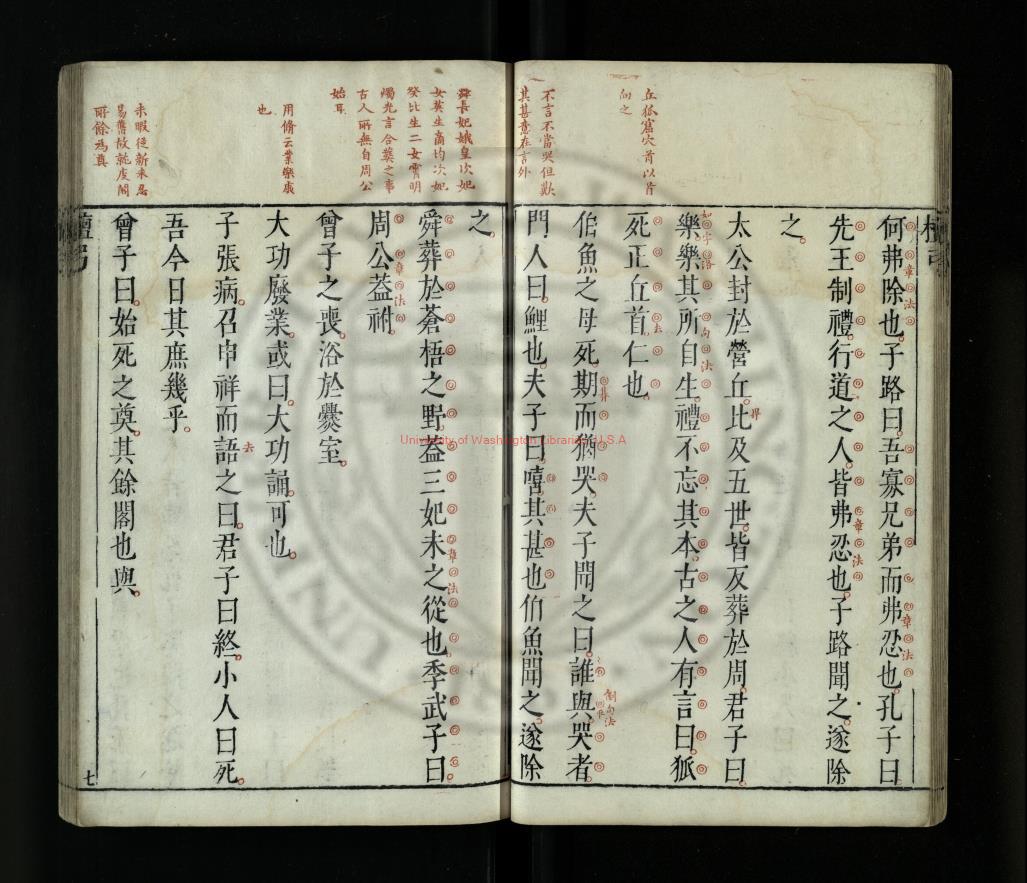 丘狐窟穴首以首
向之
不言不當哭但歎
其甚意在言外
何弗除也子路曰吾寡兄弟而弗忍也孔子曰
先王制禮行道之人皆弗忍也子路聞之遂除
之
太公封於營丘比及五世皆反葬於周君子曰
樂樂其所自生禮不忘其本古之人有言曰狐
死正丘首仁也
伯魚之母死期而猶哭夫子聞之曰誰與哭者
門人曰鯉也夫子曰嘻其甚也伯魚聞之遂除
舜長妃娥皇次妃
女英生商均次妃
癸比生二女霄明
燭光言合葬之事
古人所無自周公
始耳
用脩云業樂虡
也
未暇從新未忍
易舊故就庋閣
所餘為奠
之
舜葬於蒼梧之野葢三妃未之從也季武子曰
周公葢祔
曾子之喪浴於爨室
大功廢業或曰大功誦可也
子張病召申祥而語之曰君子曰終小人曰死
吾今日其庶幾乎
曾子曰始死之奠其餘閣也與
檀弓
七
University of Washington Libraries, U.S.A